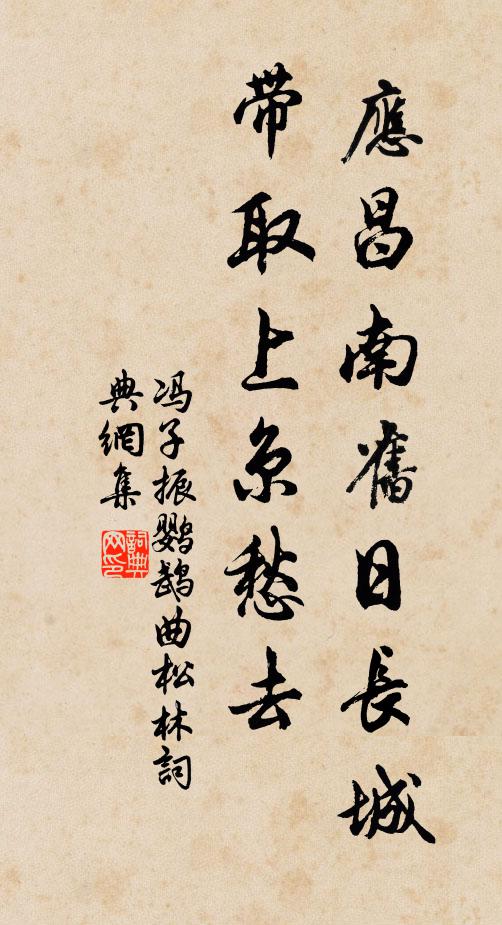 應昌南舊日長城
带取上京愁去
冯子振鹦鵡曲松林詞
典網集
詞典
网印